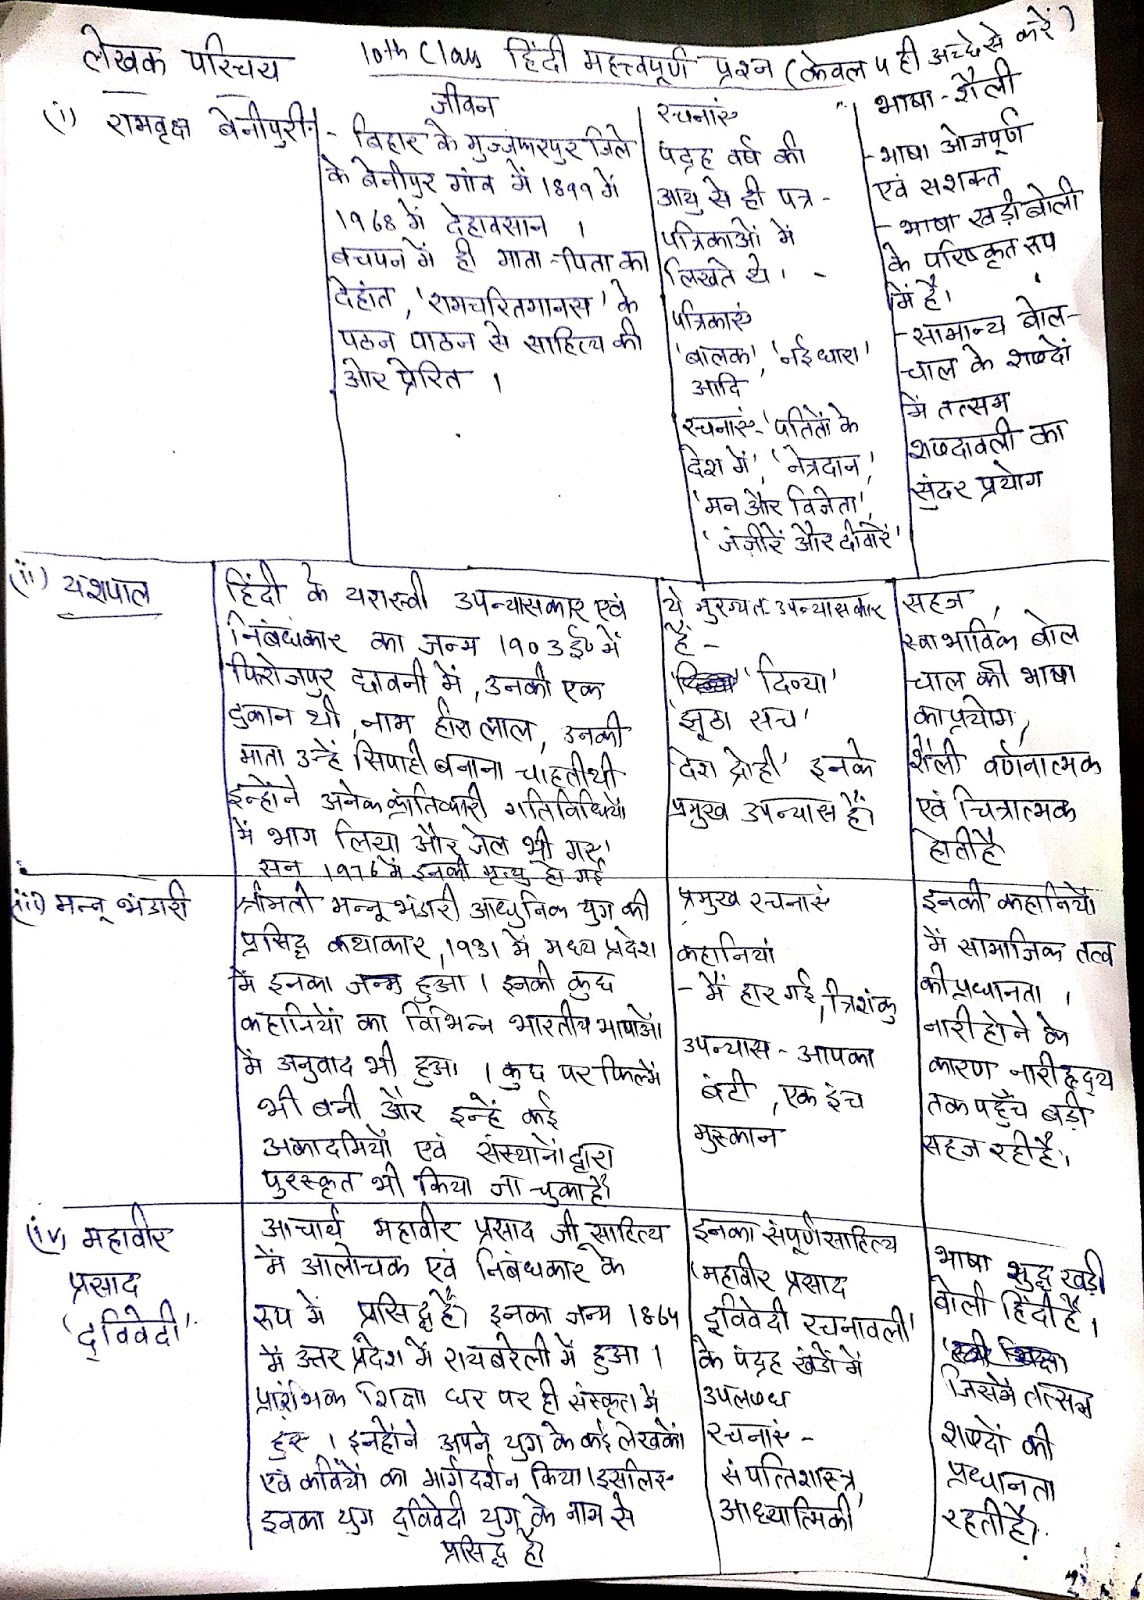 लेखक परिचय
10th Class हिंदी महत्त्वपूर्ण प्रश्न (केवल 4 ही अच्छे से करें)
(i) रामवृक्ष बेनीपुरी :-
जीवन
बिहार के मुज्जफरपुर जिले
के बेनीपुर गांव में 1899 में
1968 में देहावसान ।
बचपन में ही माता-पिता का
देहांत, 'रामचरितमानस' के
पठन पाठन से साहित्य की
ओर प्रेरित ।
रचनाएं
पंद्रह वर्ष की
आयु से ही पत्र-
पत्रिकाओं में
लिखते थे। -
पत्रिकाएं
'बालक', 'नई धारा'
आदि
रचनाएं- 'पतितों के
देश में', 'नेत्रदान',
'मन और विजेता',
'जंजीरें और दीवारें'
भाषा-शैली
-भाषा ओजपूर्ण
एवं सशक्त
-भाषा खड़ी बोली
के परिष्कृत रूप
में है।
-सामान्य बोल-
चाल के शब्दों
में तत्सम
शब्दावली का
सुंदर प्रयोग
(ii) यशपाल
हिंदी के यशस्वी उपन्यासकार एवं
निबंधकार का जन्म 1903 ई० में
फिरोजपुर छावनी में, उनकी एक
दुकान थी, नाम हीरा लाल, उनकी
माता उन्हें सिपाही बनाना चाहती थी
इन्होंने अनेक क्रांतिकारी गतिविधियों
में भाग लिया और जेल भी गए।
सन 1976 में इनकी मृत्यु हो गई
ये मुख्यत: उपन्यासकार
हैं -
'दिव्या'
'झूठा सच'
देश द्रोही' इनके
प्रमुख उपन्यास हैं।
सहज,
स्वाभाविक बोल
चाल की भाषा
का प्रयोग,
शैली वर्णनात्मक
एवं चित्रात्मक
होती है
(iii) मन्नू भंडारी
श्रीमती मन्नू भंडारी आधुनिक युग की
प्रसिद्ध कथाकार, 1931 में मध्य प्रदेश
में इनका जन्म हुआ । इनकी कुछ
कहानियों का विभिन्न भारतीय भाषाओं
में अनुवाद भी हुआ । कुछ पर फिल्में
भी बनी और इन्हें कई
अकादमियों एवं संस्थानों द्वारा
पुरस्कृत भी किया जा चुका है।
प्रमुख रचनाएं
कहानियां
- मैं हार गई, त्रिशंकु
उपन्यास - आपका
बंटी, एक इंच
मुस्कान
इनकी कहानियों
में सामाजिक तत्व
की प्रधानता ।
नारी होने के
कारण नारी हृदय
तक पहुँच बड़ी
सहज रही है।
(iv) महावीर
प्रसाद
'द्विवेदी'
आचार्य महावीर प्रसाद जी साहित्य
में आलोचक एवं निबंधकार के
रूप में प्रसिद्ध हैं। इनका जन्म 1864
में उत्तर प्रदेश में रायबरेली में हुआ ।
प्रारंभिक शिक्षा घर पर ही संस्कृत में
हुए । इन्होंने अपने युग के कई लेखकों
एवं कवियों का मार्गदर्शन किया। इसलिए
इनका युग द्विवेदी युग के नाम से
प्रसिद्ध है।
इनका संपूर्ण साहित्य
'महावीर प्रसाद
द्विवेदी रचनावली'
के पंद्रह खंडों में
उपलब्ध
रचनाएं -
संपत्तिशास्त्र,
आध्यात्मिकी
भाषा शुद्ध खड़ी
बोली हिंदी है।
जिसमें तत्सम
शब्दों की
प्रधानता
रहती है।